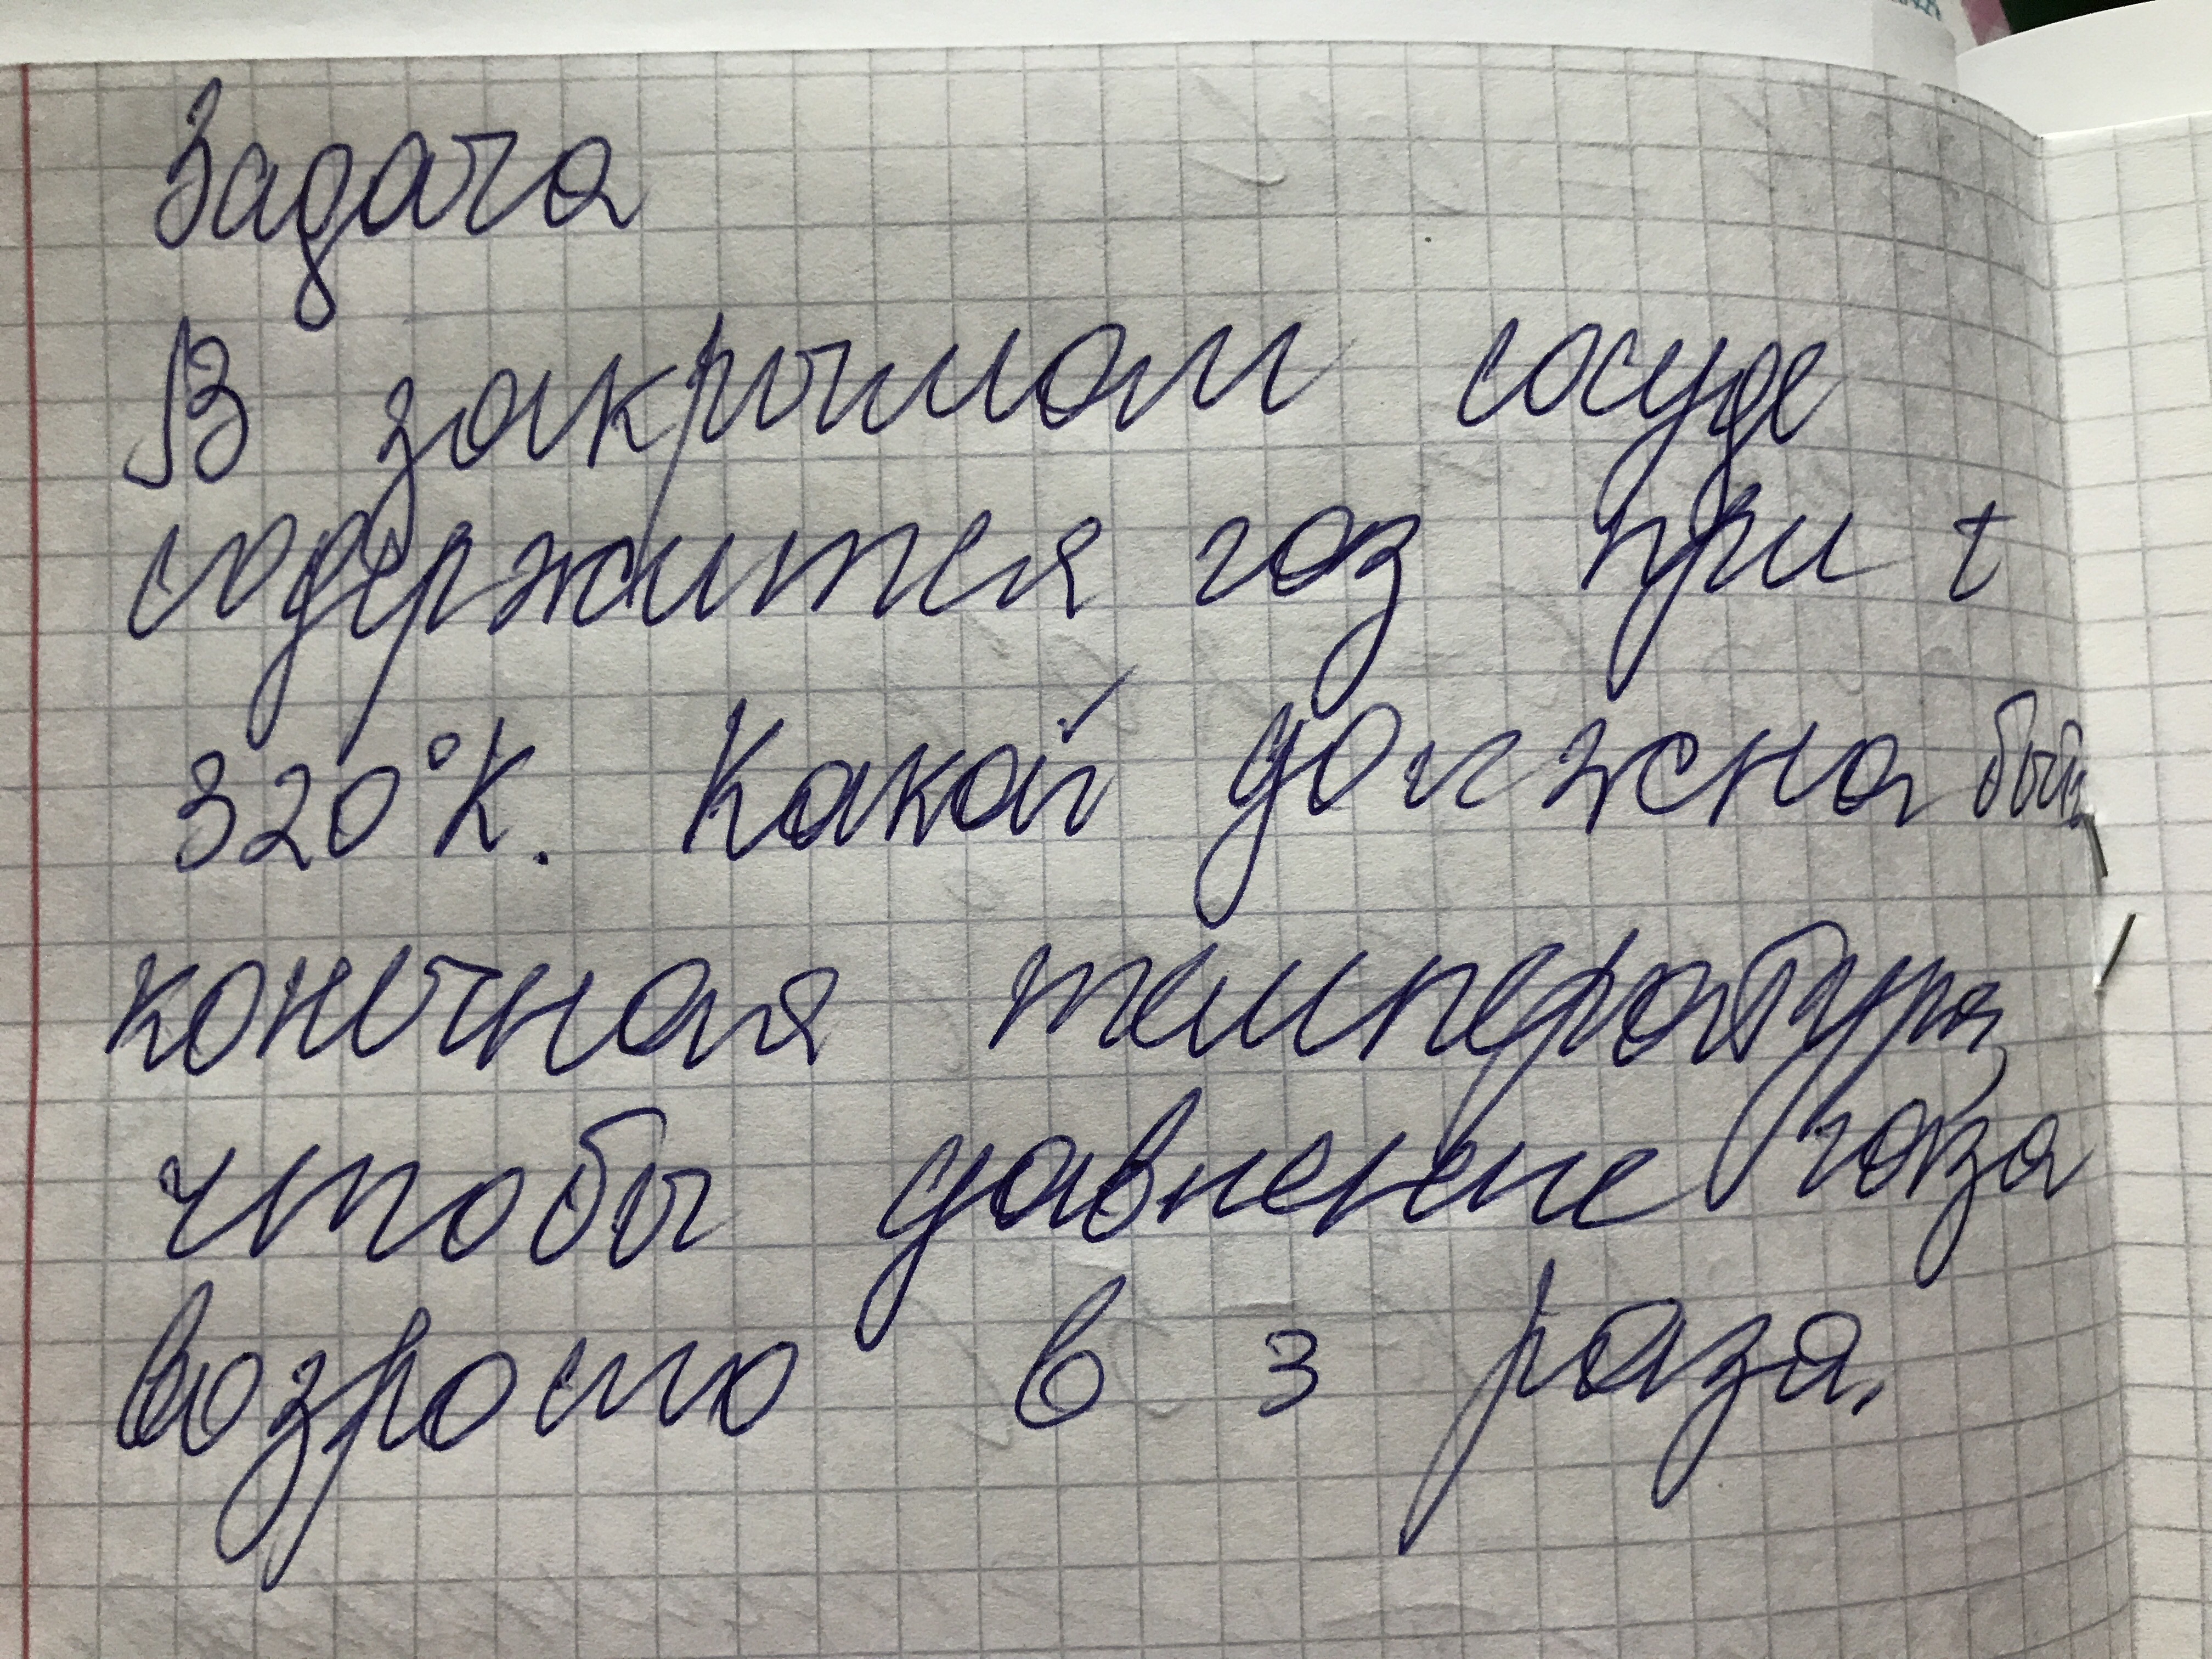 Задача
В закрытом сосуде
содержится газ при t
320°К. Какой должна быть
конечная температура,
чтобы давление газа
возросло в 3 раза.